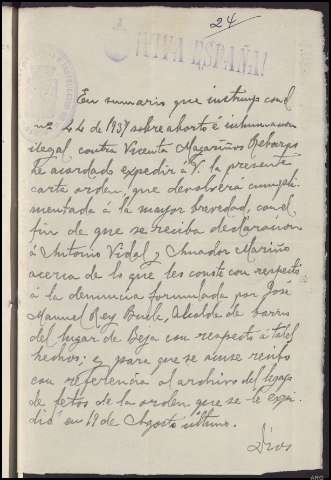 24
¡VIVA ESPAÑA!
En sumario que instruyo con el
nº 44 de 1937 sobre aborto é inhumacion
ilegal contra Vicenta Magariños
he acordado expedir á V. la presente
carta orden, que devolverá cumpli-
mentada á la mayor brevedad, con el
fin de que se reciba declaracion
á Antonio Vidal y Amador Mariño
acerca de lo que les conste con respecto
á la denuncia formulada por José
Manuel Rey Buela, Alcalde de barrio
del lugar de Beja con respecto á tales
hechos; y para que se acuse recibo
con referencia al archivo del legajo
de fetos de la orden que se le expi-
dió en 19 de Agosto ultimo.
Dios